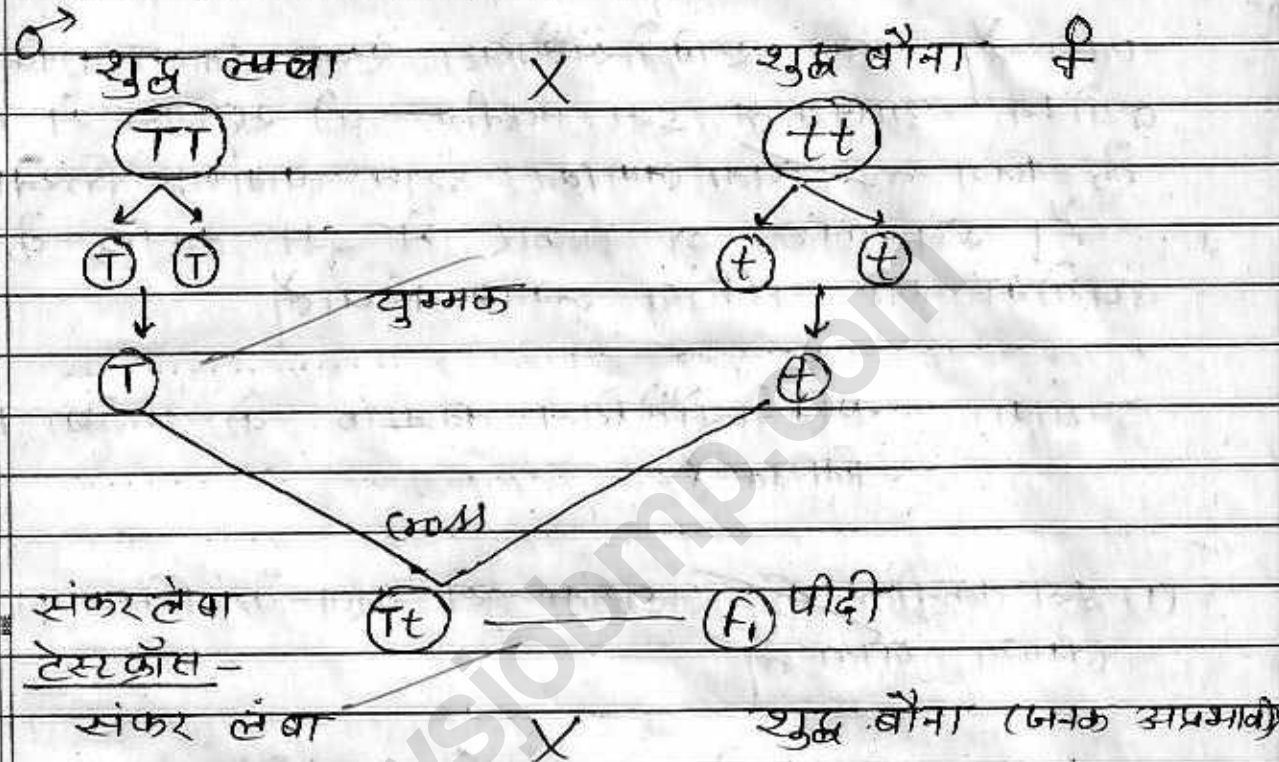 ♂ शुद्ध लम्बा X शुद्ध बौना ♀
TT tt
T T t t
युग्मक
T t
cross
संकर लंबा Tt F₁ पीढी
टेस्ट क्रॉस -
संकर लंबा X शुद्ध बौना (जनक अप्रभावी)